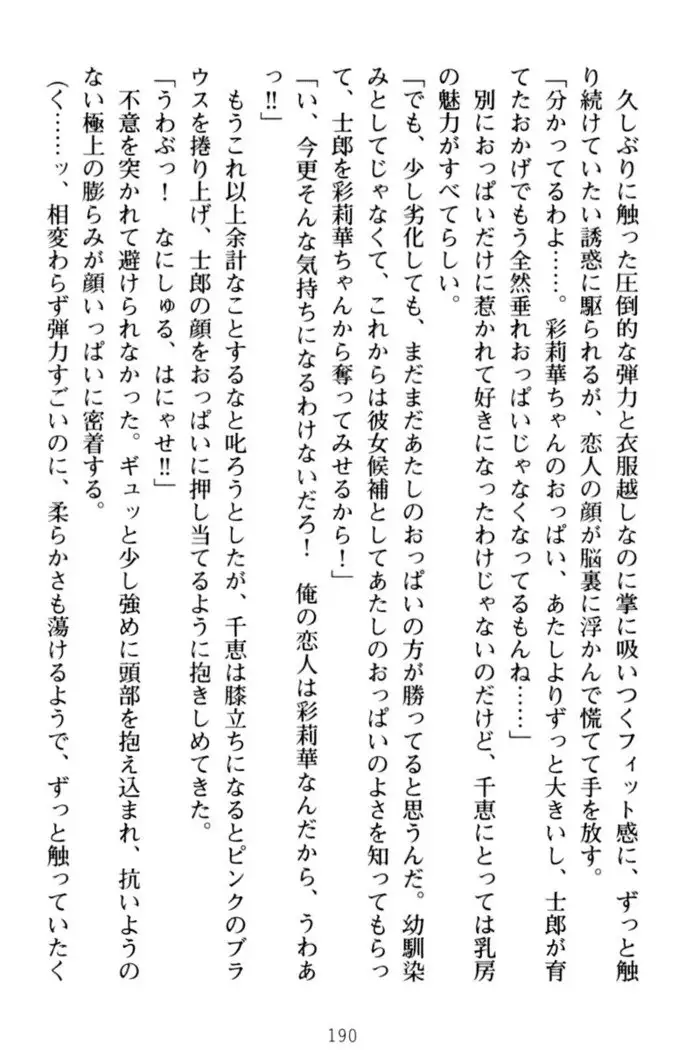 久しぶりに触った圧倒的な弾力と衣服越しなのに掌に吸いつくフィット感に、ずっと触
り続けていたい誘惑に駆られるが、恋人の顔が脳裏に浮かんで慌てて手を放す。
「分かってるわよ……。彩莉華ちゃんのおっぱい、あたしよりずっと大きいし、士郎が育
てたおかげでもう全然垂れおっぱいじゃなくなってるもんね……」
別におっぱいだけに惹かれて好きになったわけじゃないのだけど、千恵にとっては乳房
の魅力がすべてらしい。
「でも、少し劣化しても、まだまだあたしのおっぱいの方が勝ってると思うんだ。幼馴染
みとしてじゃなくて、これからは彼女候補としてあたしのおっぱいのよさを知ってもらっ
て、士郎を彩莉華ちゃんから奪ってみせるから！」
「い、今更そんな気持ちになるわけないだろ！　俺の恋人は彩莉華なんだから、うわあ
っ‼」
もうこれ以上余計なことするなと叱ろうとしたが、千恵は膝立ちになるとピンクのブラ
ウスを捲り上げ、士郎の顔をおっぱいに押し当てるように抱きしめてきた。
「うわぶっ！　なにしゅる、はにゃせ‼」
不意を突かれて避けられなかった。ギュッと少し強めに頭部を抱え込まれ、抗いようの
ない極上の膨らみが顔いっぱいに密着する。
（く……ッ、相変わらず弾力すごいのに、柔らかさも蕩けるようで、ずっと触っていたく
190